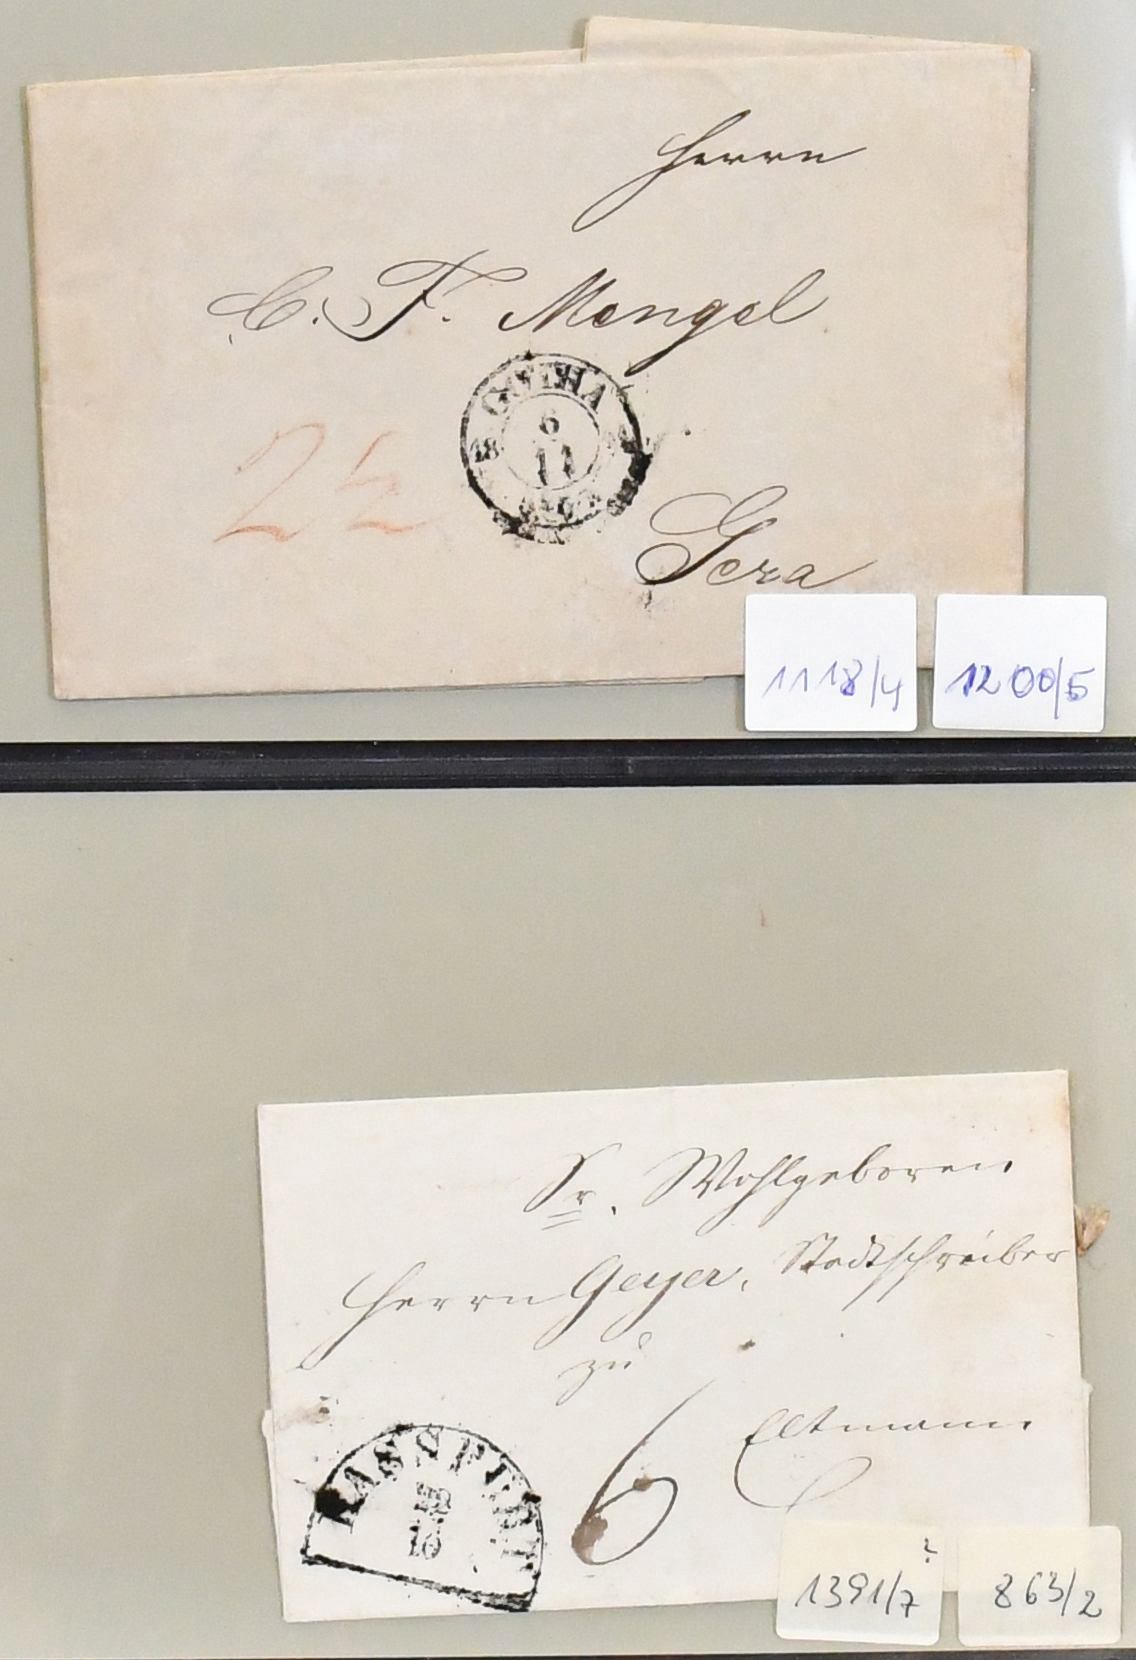 Herrn
C. F. Mengel
GOTHA
6
11
2½
Gera
1118/4
1200/5
Sr. Wohlgeboren
Herrn Geyer, Stadtschreiber
zu
Eltmann.
6
HASSFURT
1391/7
?
863/2